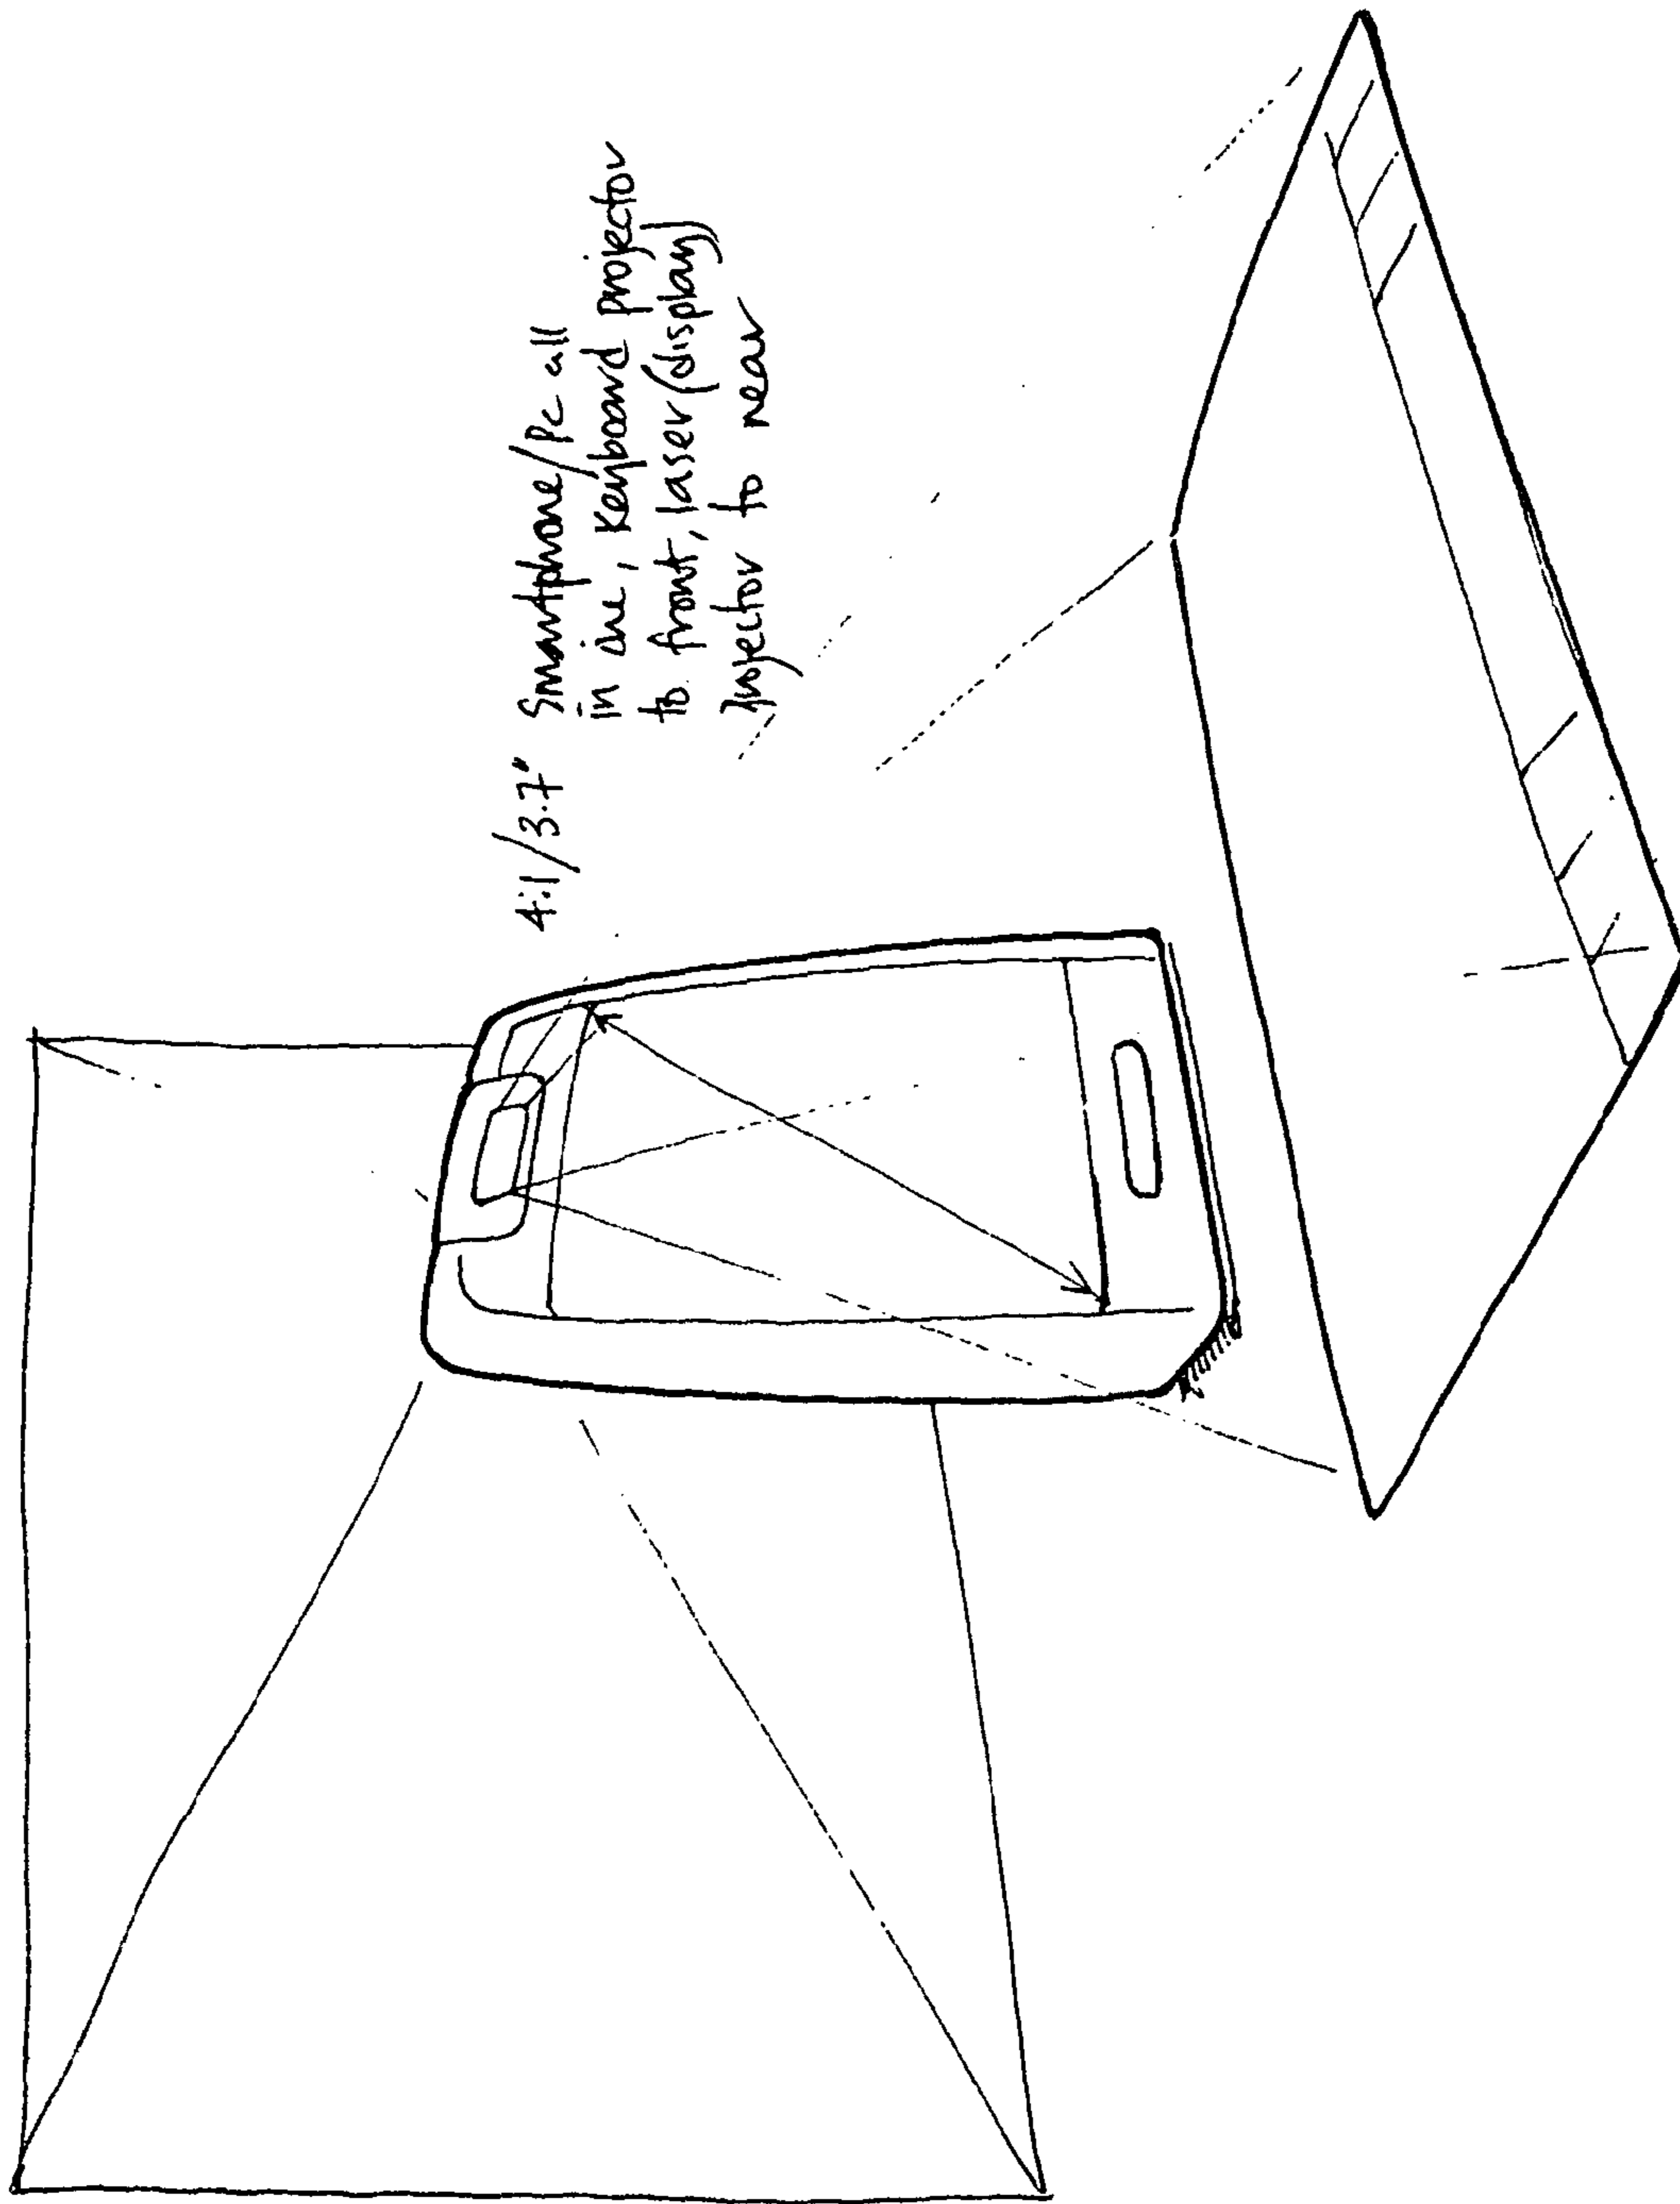 4:1/3.7" Smartphone/Pc all
in one, Keyboard projector
to front, laser (display)
projector to rear